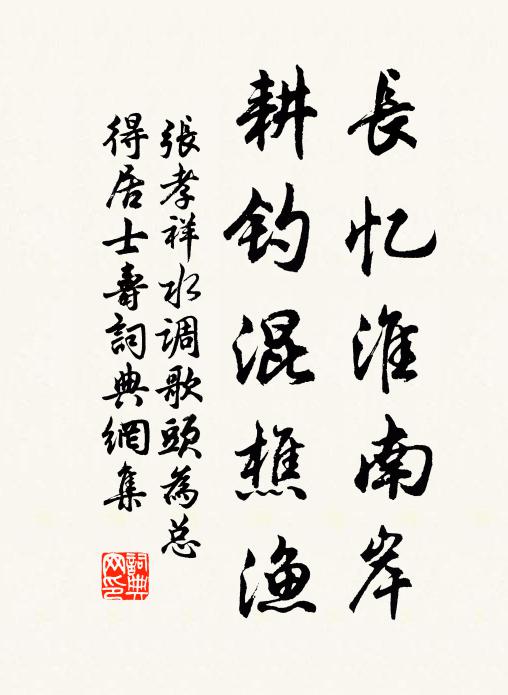 長忆淮南岸
耕钓混樵渔
張孝祥水调歌頭為总
得居士壽詞典網集
詞典
网印